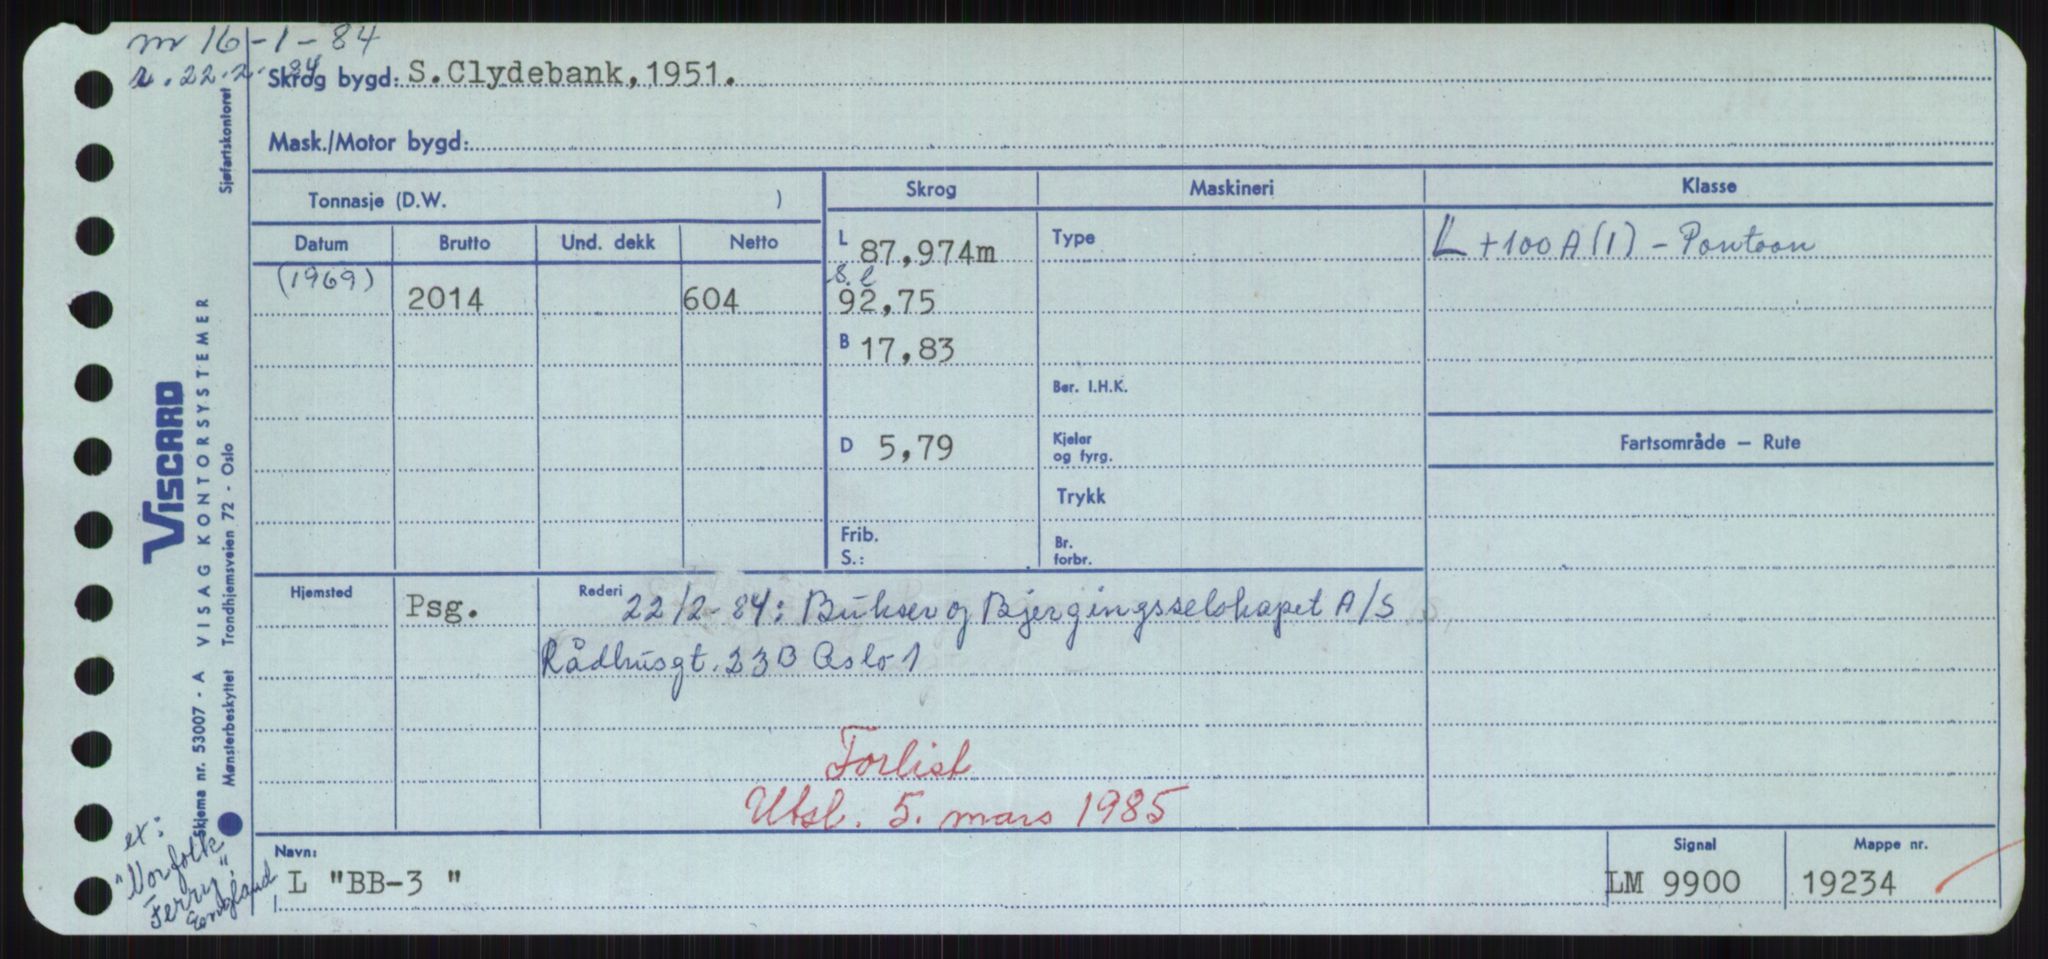 m 16-1-84
r. 22.2.84
Skrog bygd: S.Clydebank, 1951.
Mask./Motor bygd:
Tonnasje (D.W. )
Skrog
Maskineri
Klasse
Datum
Brutto
Und. dekk
Netto
L 87,974m
Type
L +100A(1) - Pontoon
(1969)
2014
604
S.l
92,75
B 17,83
Ber. I.H.K.
D 5,79
Kjeler
og fyrg.
Fartsområde — Rute
Trykk
Frib.
S.:
Br.
forbr.
Hjemsted
Psg.
Rederi
22/2-84: Bukser og Bjergingsselskapet A/S
Rådhusgt. 23B Oslo 1
Forlist
Utsl. 5. mars 1985
Navn:
L "BB-3 "
Signal
LM 9900
Mappe nr.
19234
ex:
"Norfolk
Ferry"
England
Sjøfartskontoret
VISCARD
VISAG KONTORSYSTEMER
Skjema nr. 53007 - A
Mønsterbeskyttet Trondhjemsveien 72 - Oslo